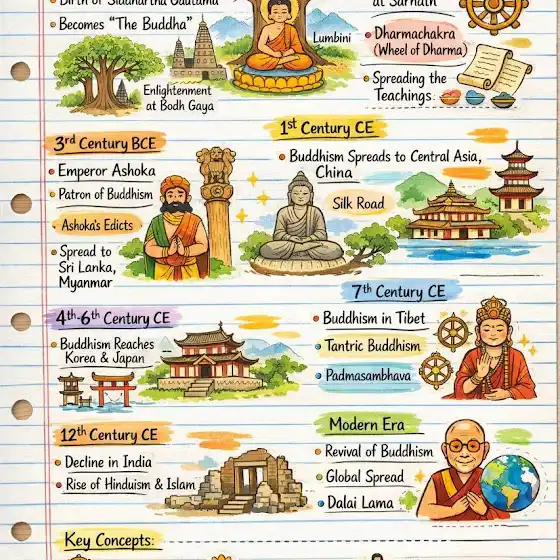 Birth of Siddhartha Gautama
Becomes "The Buddha"
Enlightenment
at Bodh Gaya
Lumbini
at Sarnath
Dharmachakra
(Wheel of Dharma)
Spreading the
Teachings
3rd Century BCE
Emperor Ashoka
Patron of Buddhism
Ashoka's Edicts
Spread to
Sri Lanka,
Myanmar
1st Century CE
Buddhism Spreads to Central Asia,
China
Silk Road
4th-6th Century CE
Buddhism Reaches
Korea & Japan
7th Century CE
Buddhism in Tibet
Tantric Buddhism
Padmasambhava
12th Century CE
Decline in India
Rise of Hinduism & Islam
Modern Era
Revival of Buddhism
Global Spread
Dalai Lama
Key Concepts: